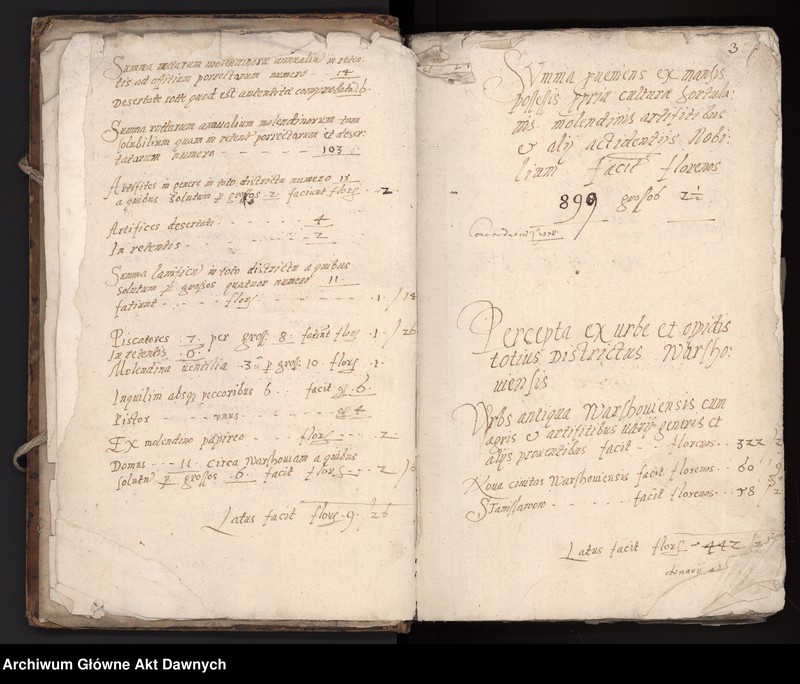 Summa rottarum molendinorum annualiu in reten:
tis ad offitium porrectarum numero 14
Desertate rotte quod est autentice comprobatu 6.
Summa rottarum annualium molendinorum tam
solubilium quam in retent porrectarum et deser:
tatarum numero 103
Artifices in genere in toto districtu numero
a quibus solutum p grossos 2 faciunt flor 2
Artifices desertati 4
In retentis 2
Summa lanificu in toto districtu a quibus
solutum p grossos quatuor numero 11
faciunt flor 1 / 14
Piscatores 7 per gross 8 faciut flor 1 / 26
In retentis 6
Molendina uentilia 3 p gross 10 flor 1
Inquilini absq peccoribus 6 facit gr 6
Pistor unus gr 4
Ex molendino papireo flor 2
Domus 11 Circa Warschouiam a quibus
solutu p grossos 6 facit flor 2 / 6
Latus facit flor 9 / 26
3
Summa ex mansis
possessis ppria cultura hortula:
nis molendinis artifitibus
et alijs accidentijs Nobi:
lium facit florenos
899 grossos 2 1/2
Percepta ex urbe et opidis
totius Districtus Warsho:
uiensis
Urbs antiqua Warshouiensis cum
agris et artifitibus uarij generis et
alijs prouentibus facit florenos 322
Noua ciuitas Warshouiensis facit florenos 60 / 9
Stanislawow facit florenos
Latus facit flor 442
denarij
Archiwum Główne Akt Dawnych